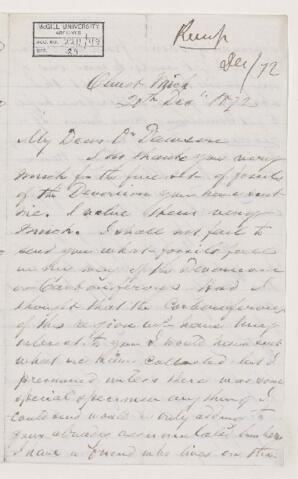 McGILL UNIVERSITY
ARCHIVES
ACC. NO.
REF.
Dec/72
Mich
1872
My Dear Dr Dawson
I thank you very
much for the fine set of fossils
of the Devonian you have sent
me. I value them very
much. I shall not fail to
send you what fossils fall
in my way of the Devonian
or Carboniferous Had I
thought that the Carboniferous
of this region have any
interest to you I would have sent
what we have collected but I
presumed unless there was some
special specimen any thing I
could send would only adding to
your already accumulated
I have a friend who lives on the